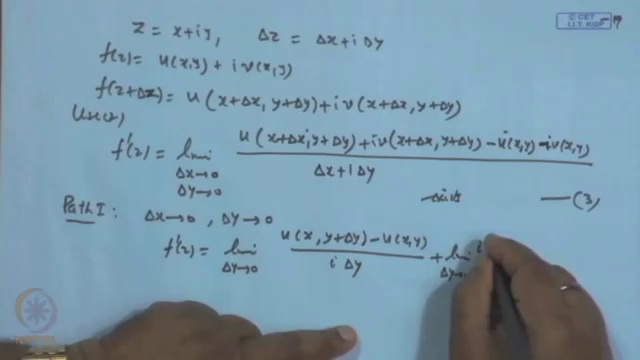 © CET
I.I.T. KGP
z = x+iy, Δz = Δx+iΔy
f(z) = u(x,y) + i v(x,y)
f(z+Δz) = u(x+Δx, y+Δy) + i v(x+Δx, y+Δy)
f'(z) = lim Δx→0 Δy→0 u(x+Δx, y+Δy) + iv(x+Δx, y+Δy) − u(x,y) − iv(x,y) / Δx+iΔy
exists —(3)
Path I: Δx→0, Δy→0
f'(z) = lim Δy→0 u(x, y+Δy) − u(x,y) / iΔy + lim Δy→ i